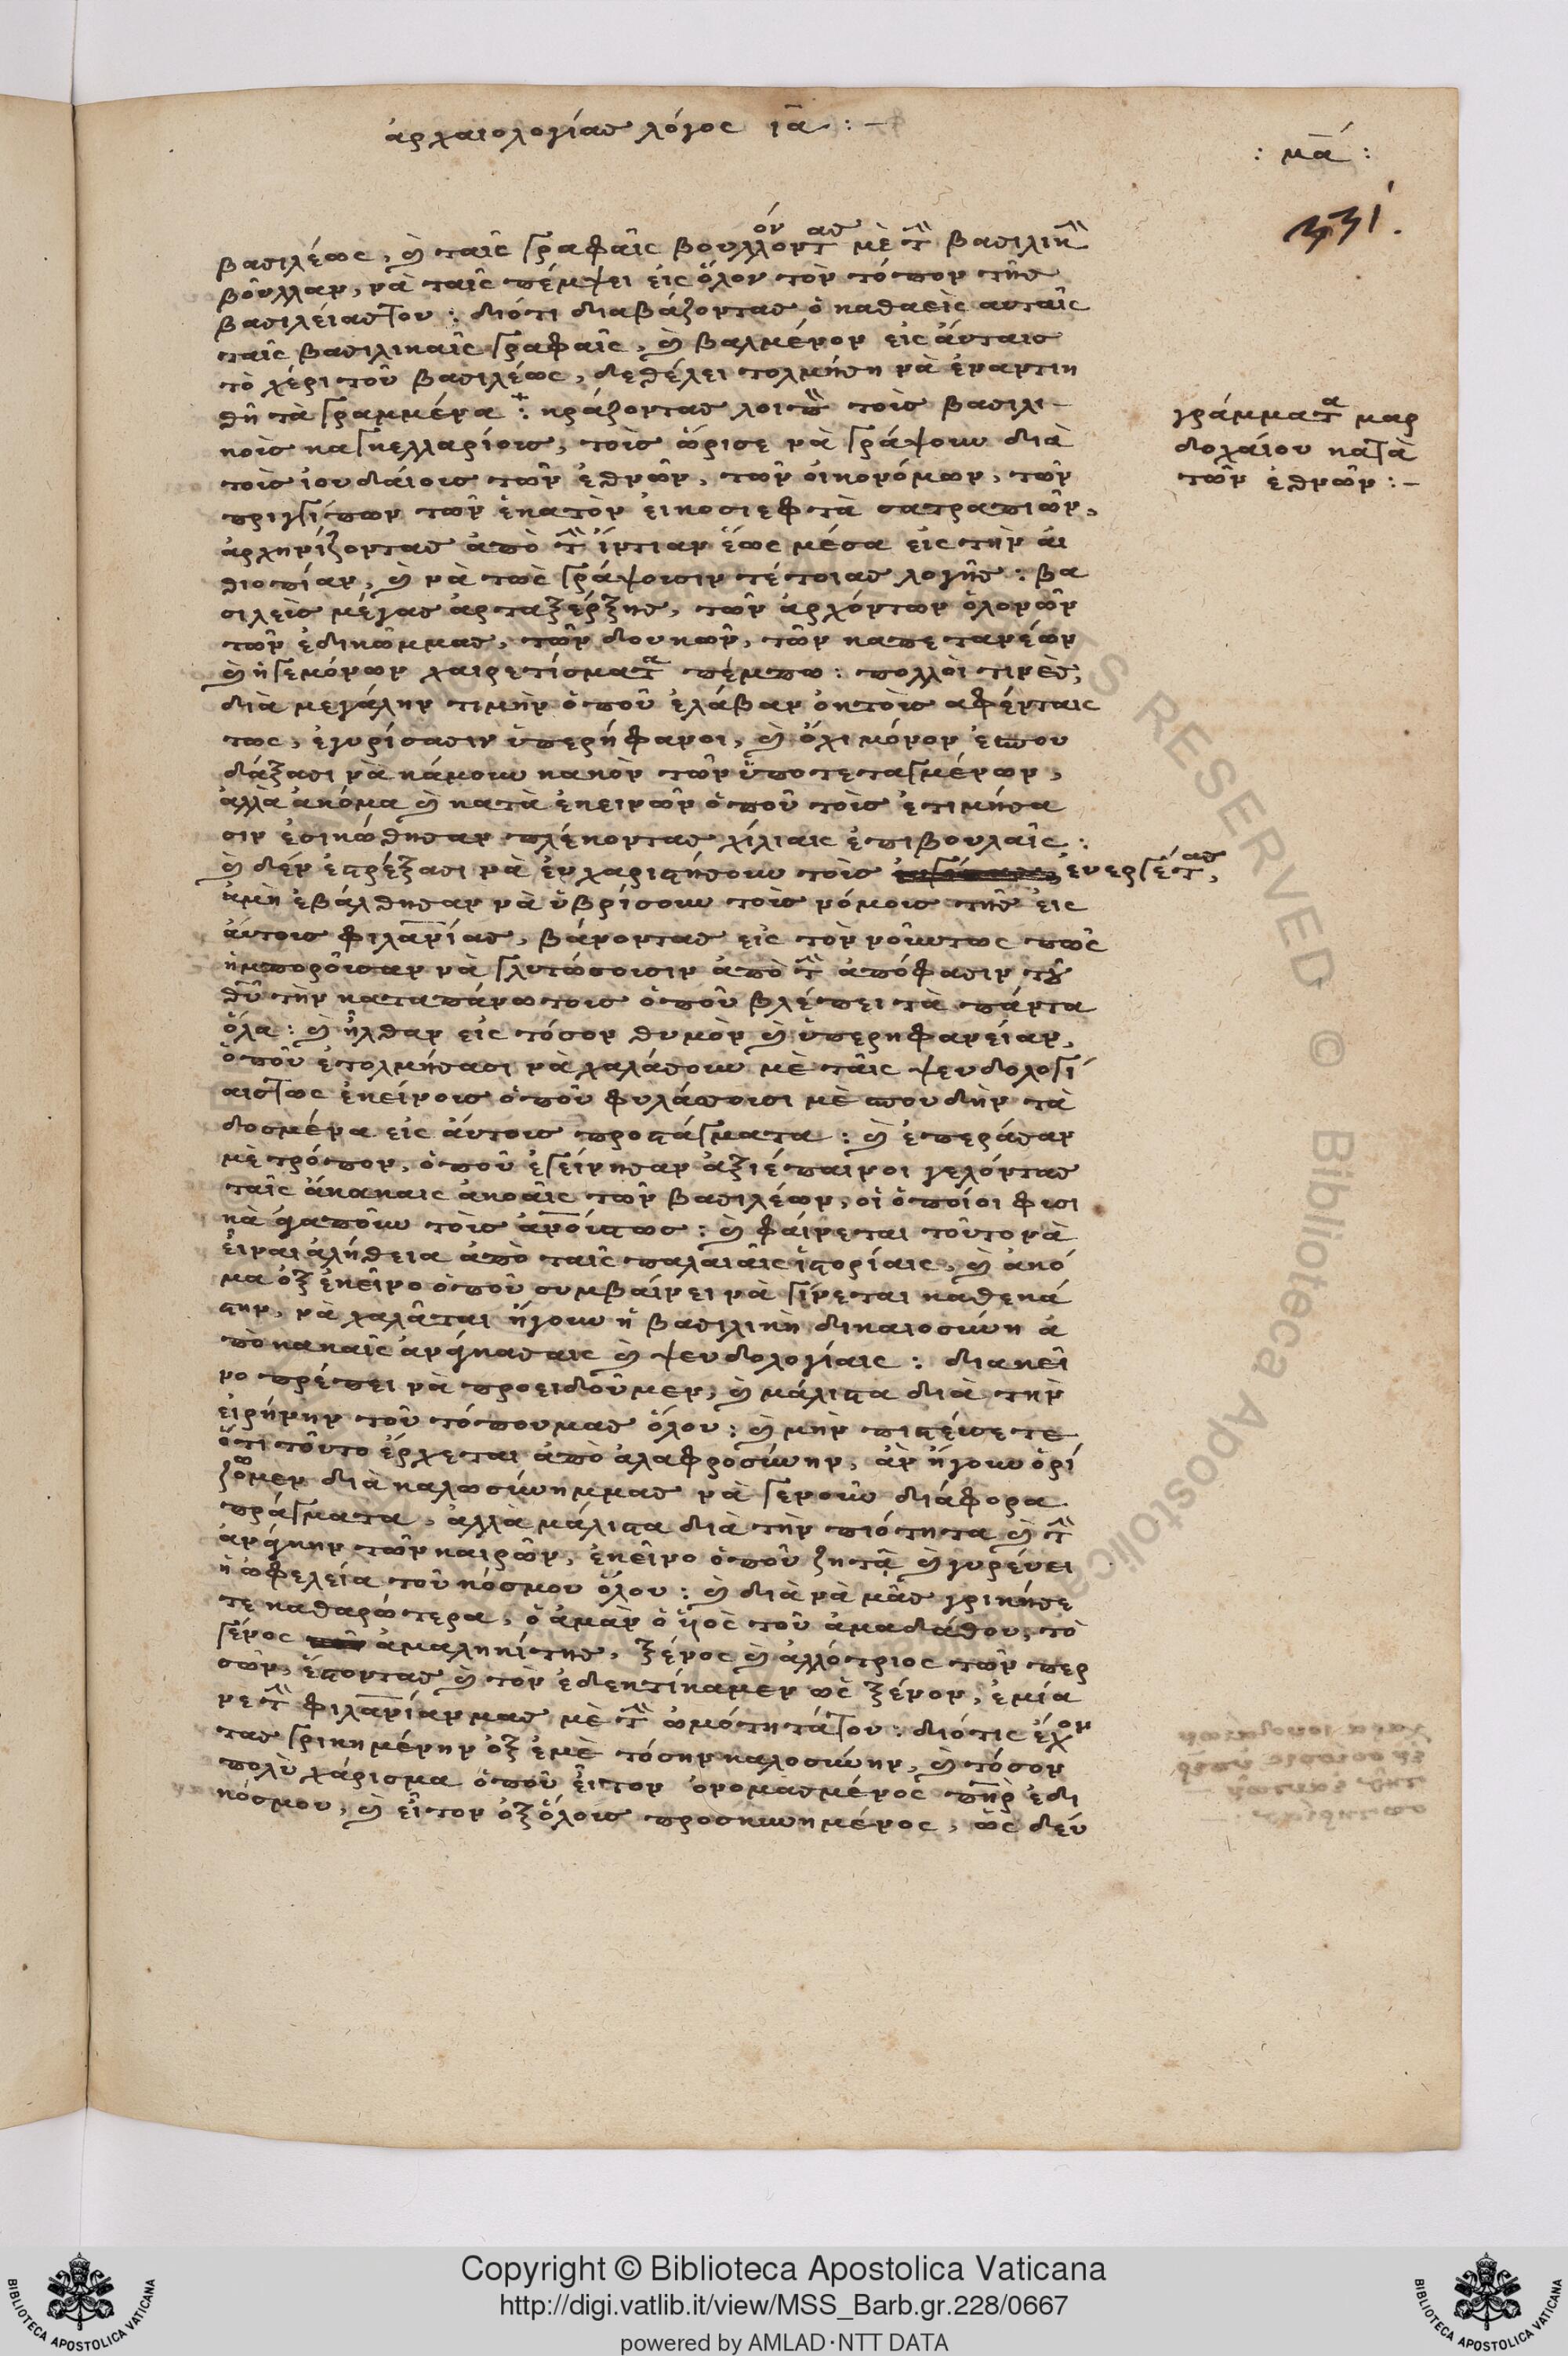 ἀρχαιολογίας λόγος ια :-
: μα :
331.
βασιλέως, καὶ ταῖς γραφαῖς βουλλόνοντας μὲ τὴν βασιλικὴν
βοῦλλαν, νὰ ταῖς πέμψει εἰς ὅλον τὸν τόπον τῆς
βασιλείας του : διότι διαβάζοντας ὁ καθαεὶς αυταῖς
ταῖς βασιλικαῖς γραφαῖς, καὶ βαλμένον εἰς ἄυταις
τὸ χέρι τοῦ βασιλέως, δεθέλει τολμήση νὰ ἐναντιη
θῆ τὰ γραμμένα : κράζοντας λοιπὸν τοὶς βασιλι-
κοὶς καγκελλαρίοις, τοὶς ὥρισε νὰ γράψουν διὰ
τοὶς ἰουδάιοις τῶν ἐθνῶν, τῶν ὀικονόμων, τῶν
πριγκίπων τῶν ἑκατὸν ἐικοσιεφτὰ σατραπιῶν,
ἀρχηνίζοντας ἀπὸ τὴν ἴντιαν ἕως μέσα εἰς τὴν ἀι
θιοπίαν, καὶ νὰ τωὲ γράψοισιν τέτοιας λογῆς : βα
σιλεὶς μέγας ἀρταξέρξης, τῶν ἀρχόντων ὁλονῶν
τῶν ἐδικῶμμας, τῶν δουκῶν, τῶν καπετανέων
καὶ ἡγεμόνων χαιρετίσματα πέμπω : πολλὸι τινὲς,
διὰ μεγάλην τιμὴν ὁποῦ ἐλάβαν ὀκτὸις αφένταις
τως, ἐγυρίσασιν ὑπερήφανοι, καὶ ὄχι μόνον ἐσπου
δάξασι νὰ κάμουν κακὸν τῶν ὑποτεταγμένων,
ἀλλὰ ἀκόμα καὶ κατὰ ἐκεινῶν ὁποῦ τοὶς ἐτιμήσα
σιν ἐσικώθησαν πλέκοντας χίλιαις ἐπιβουλαῖς :
καὶ δὲν ἐστρέξασι νὰ ἐυχαριστήσουν τοὶς ἐυεργέτας,
ἀμὴ ἐβάλθησαν νὰ ὑβρίσουν τοὶς νόμοις τῆς εἰς
ἄυτοις φιλανίας, βάνοντας εἰς τὸν νοῦντως πῶς
ἠμποροῦσαν νὰ γλυτώσοισιν ἀπὸ τὴν ἀπόφασιν τοῦ
θεοῦ τὴν καταπάνωτοις ὁποῦ βλέπει τὰ πάντα
ὅλα : καὶ ἦλθαν εἰς τόσον θυμὸν καὶ ὑπερηφανείαν,
ὁποῦ ἐτολμήσασι νὰ χαλάσουν μὲ τᾶις ψευδολογί
αιςτως ἐκείνοις ὁποῦ φυλάττοισι μὲ σπουδὴν τὰ
δοσμένα εἰς ἄυτοις προστάγματα : καὶ ἐπεράσαν
μὲ τρόπον, ὁποῦ ἐγείνησαν ἀξιέπαινοι γελόντας
ταῖς ἄκακαις ἀκοᾶις τῶν βασιλέων, οἱ ὁποίοι φυσι
κὰ ἀγαποῦν τοὶς ἀνοίστως : καὶ φάινεται τοῦτο νὰ
ἐιναι ἀλήθεια ἀπὸ ταῖς παλαιᾶις ἱστορίαις, καὶ ἀκό
μα ὀξ ἐκεῖνο ὁποῦ συμβάινει νὰ γίνεται καθεκά
στην, νὰ χαλᾶται ἤγουν ἡ βασιλικὴ δικαιοσύνη ἀ
πὸ κακαῖς ἀνάγκασαις καὶ ψευδολογίαις : διακεῖ
νο πρέπει νὰ προειδοῦμεν, καὶ μάλιστα διὰ τὴν
εἰρήνην τοῦ τόπουμας ὅλου : καὶ μὴν πιστέυσετε
ὅτι τοῦτο ἔρχεται ἀπὸ ἀλαφροσύνην, ἀν ἤγουν ὁρί
ζομεν διὰ καλωσύνημμας νὰ γενοῦν διάφορα
πράγματα, ἀλλὰ μάλιστα διὰ τὴν πιότητα καὶ τὴν
ἀνάγκην τῶν καιρῶν, ἐκεῖνο ὁποῦ ζητᾶ καὶ γυρέυει
ἡ ὠφελεία τοῦ κόσμου ὅλου : καὶ διὰ νὰ μᾶς γρικήσε
τε καθαρώτερα, ὁ ἀμὰν ὁ ὑιὸς τοῦ ἀμαδάθου, τὸ
γένος ἀμαληκίτης, ξένος καὶ ἀλλότριος τῶν περ
σῶν, ἔστοντας καὶ τὸν ἐδεκτίκαμεν ὡς ξένον, ἐμία
νε τὴν φιλανίανμας μὲ τὴν ὠμότητάτου : διότις ἔχον
τας γρικημένην ὀξ ἐμὲ τόσην καλοσύνην, καὶ τόσον
πολὺ χάρισμα ὁποῦ ἐῖστον ὀνομασμένος πὴρ ἐδι
κόσμου, καὶ εἶτον ὀξ ὅλοις προσκυνημένος, ὡς δέυ
γράμματα μαρ
δοχάιου κατὰ
τῶν ἐθνῶν :-
Copyright © Biblioteca Apostolica Vaticana
http://digi.vatlib.it/view/MSS_Barb.gr.228/0667
powered by AMLAD·NTT DATA
BIBLIOTECA APOSTOLICA VATICANA
BIBLIOTECA APOSTOLICA VATICANA